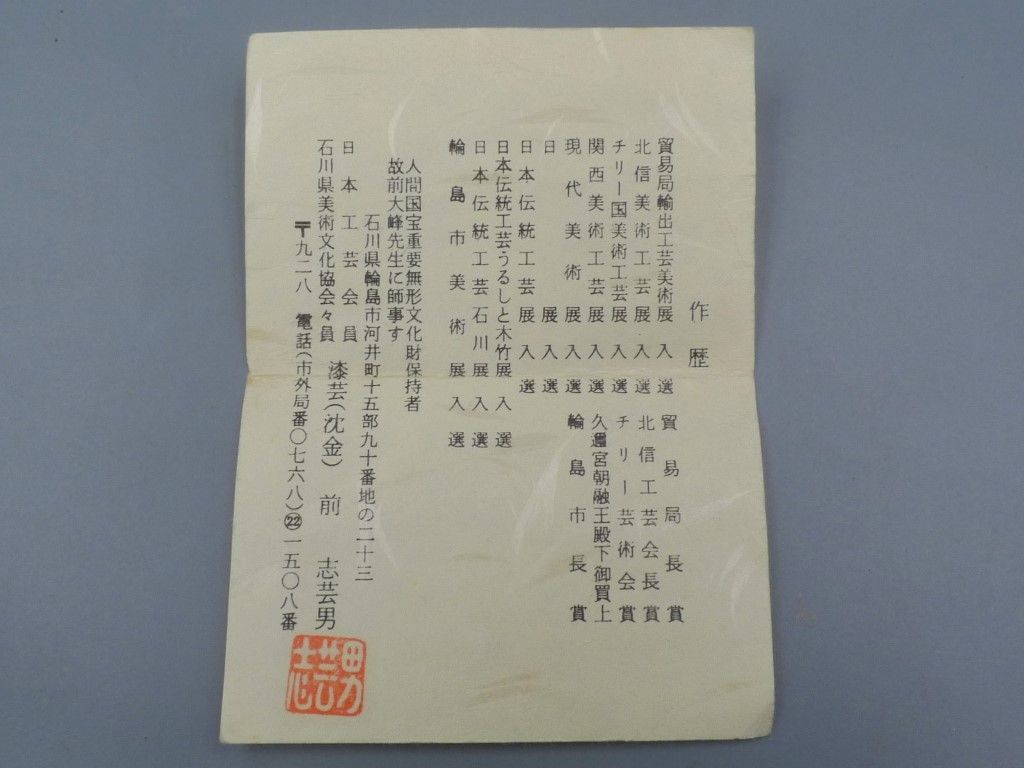 作歴
貿易局輸出工芸美術展入選
北信美術工芸展入選
チリー国美術工芸展入選
関西美術工芸展入選
現代美術展入選
日展入選
日本伝統工芸展入選
日本伝統工芸うるしと木竹展入選
日本伝統工芸石川展入選
輪島市美術展入選
貿易局長賞
北信工芸会長賞
チリー芸術会賞
久邇宮朝融王殿下御買上
輪島市長賞
人間国宝重要無形文化財保持者
故前大峰先生に師事す
石川県輪島市河井町十五部九十番地の二十三
日本工芸会員
石川県美術文化協会々員
漆芸(沈金) 前 志芸男
〒九二八 電話(市外局番〇七六八)㉒一五〇八番
志芸男